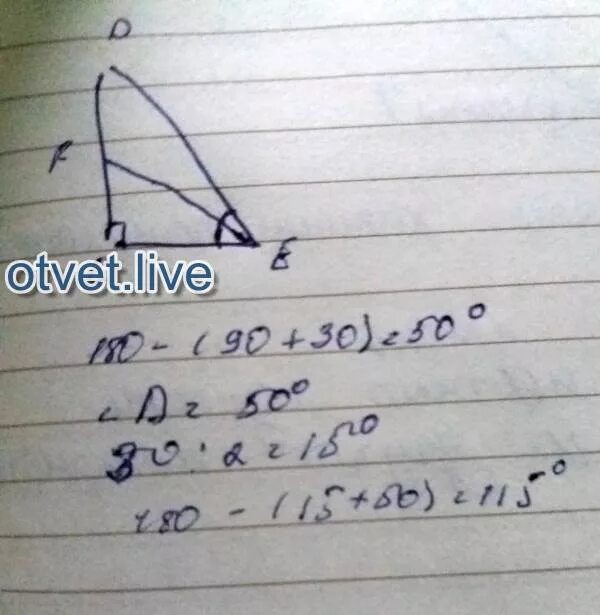 D
F
E
otvet.live
180 - (90 + 30) = 50°
∠D = 50°
30 : 2 = 15°
180 - (15 + 50) = 115°